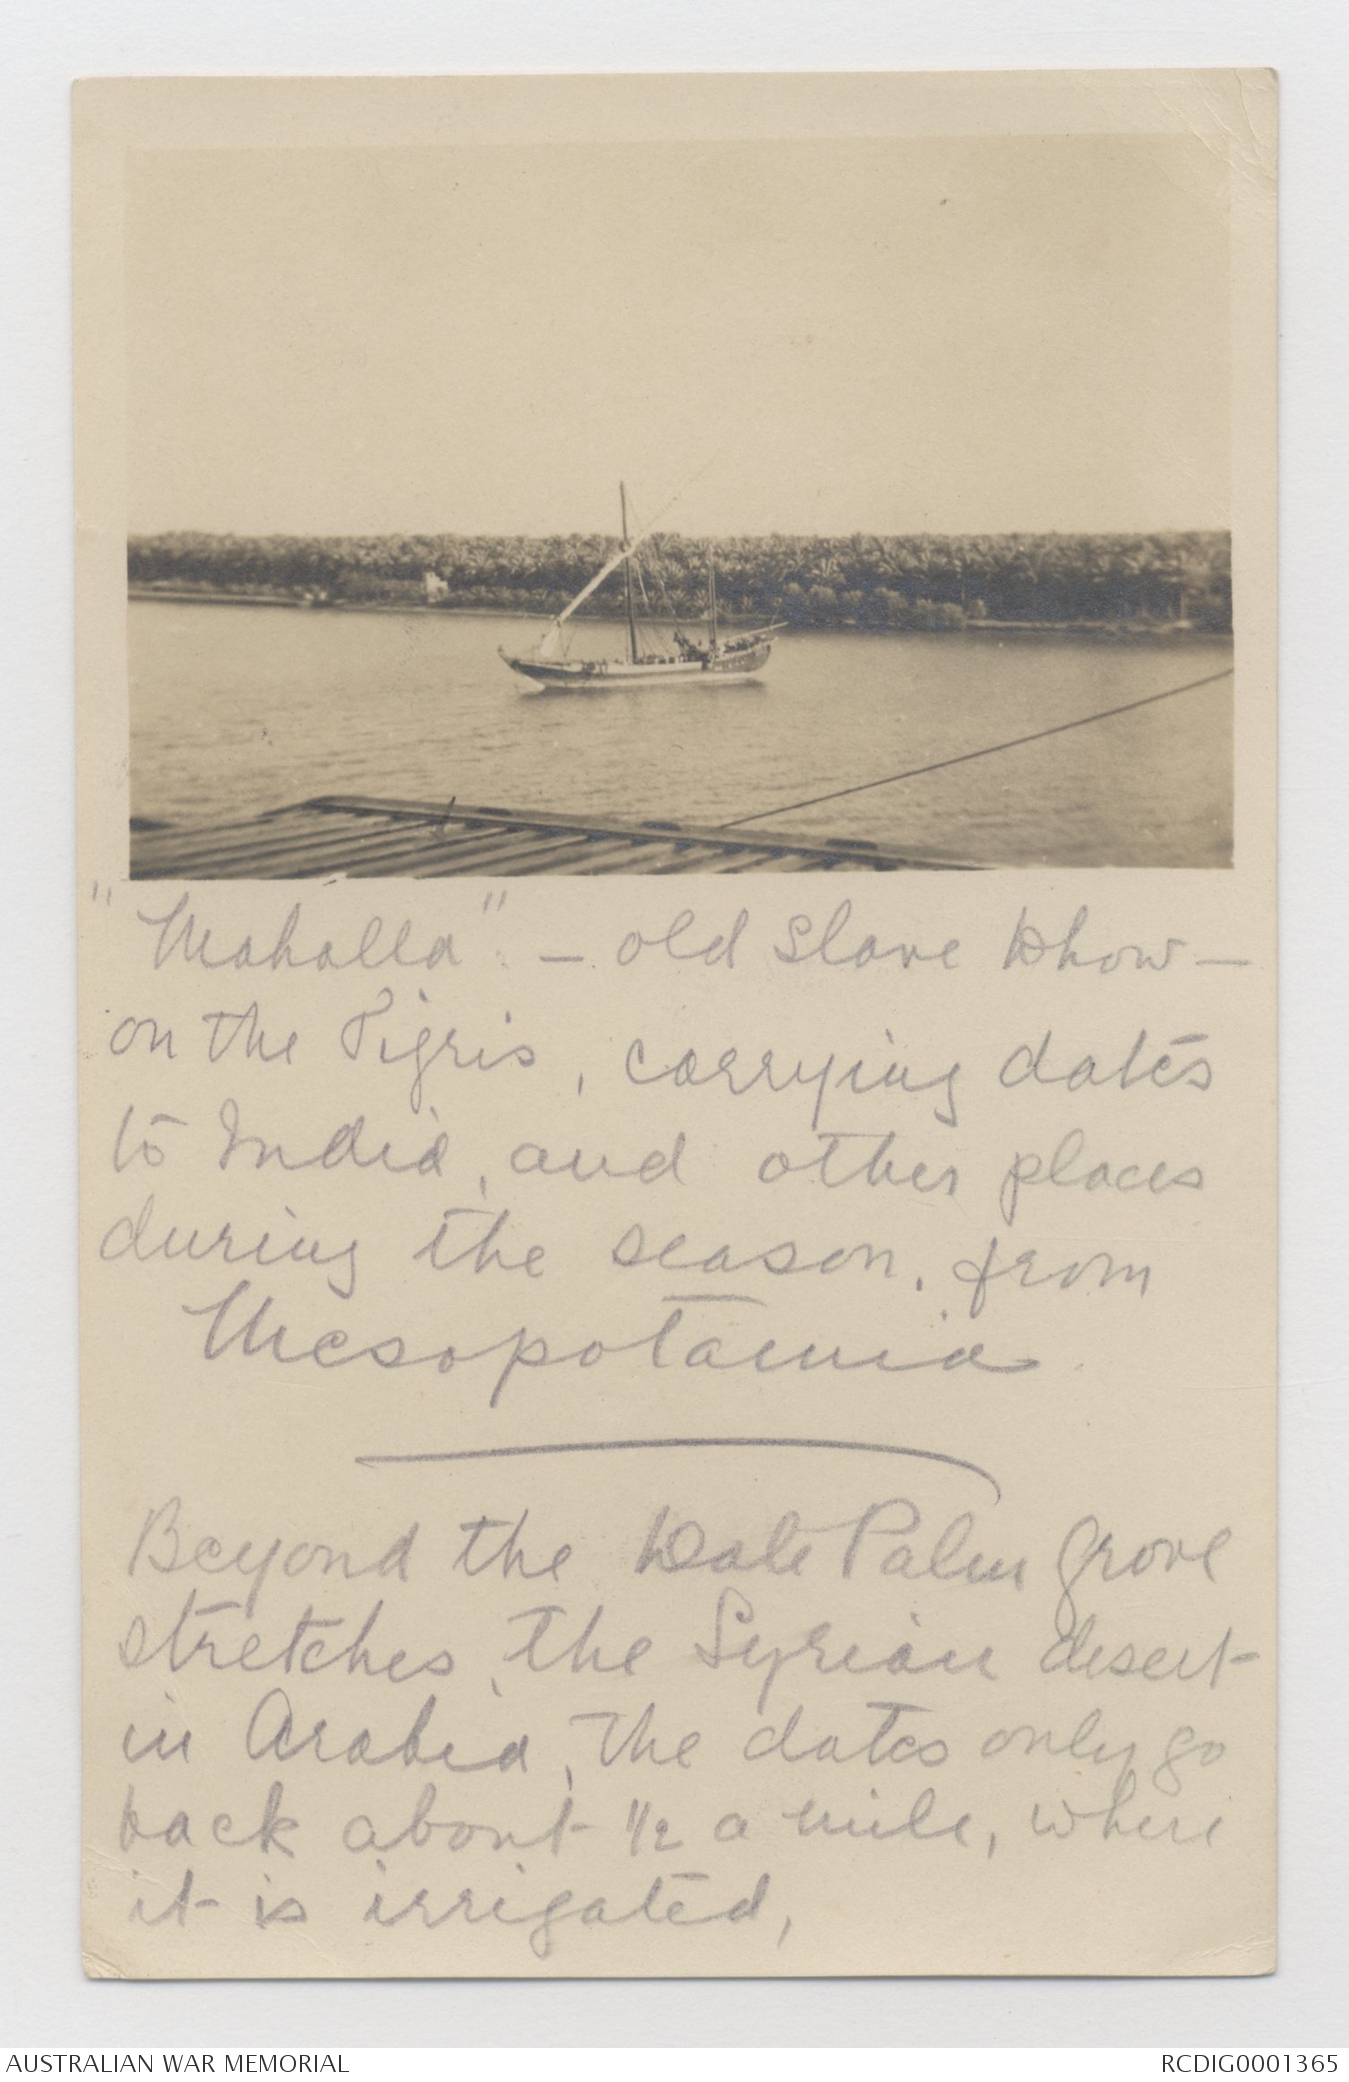 "Mahalla" - old Slave Dhow -
on the Tigris, carrying dates
to India, and other places
during the season. from
Mesopotamia
Beyond the Date Palm grove
stretches, the Syrian desert
in Arabia, The dates only go
back about 1/2 a mile, where
it is irrigated,
AUSTRALIAN WAR MEMORIAL
RCDIG0001365